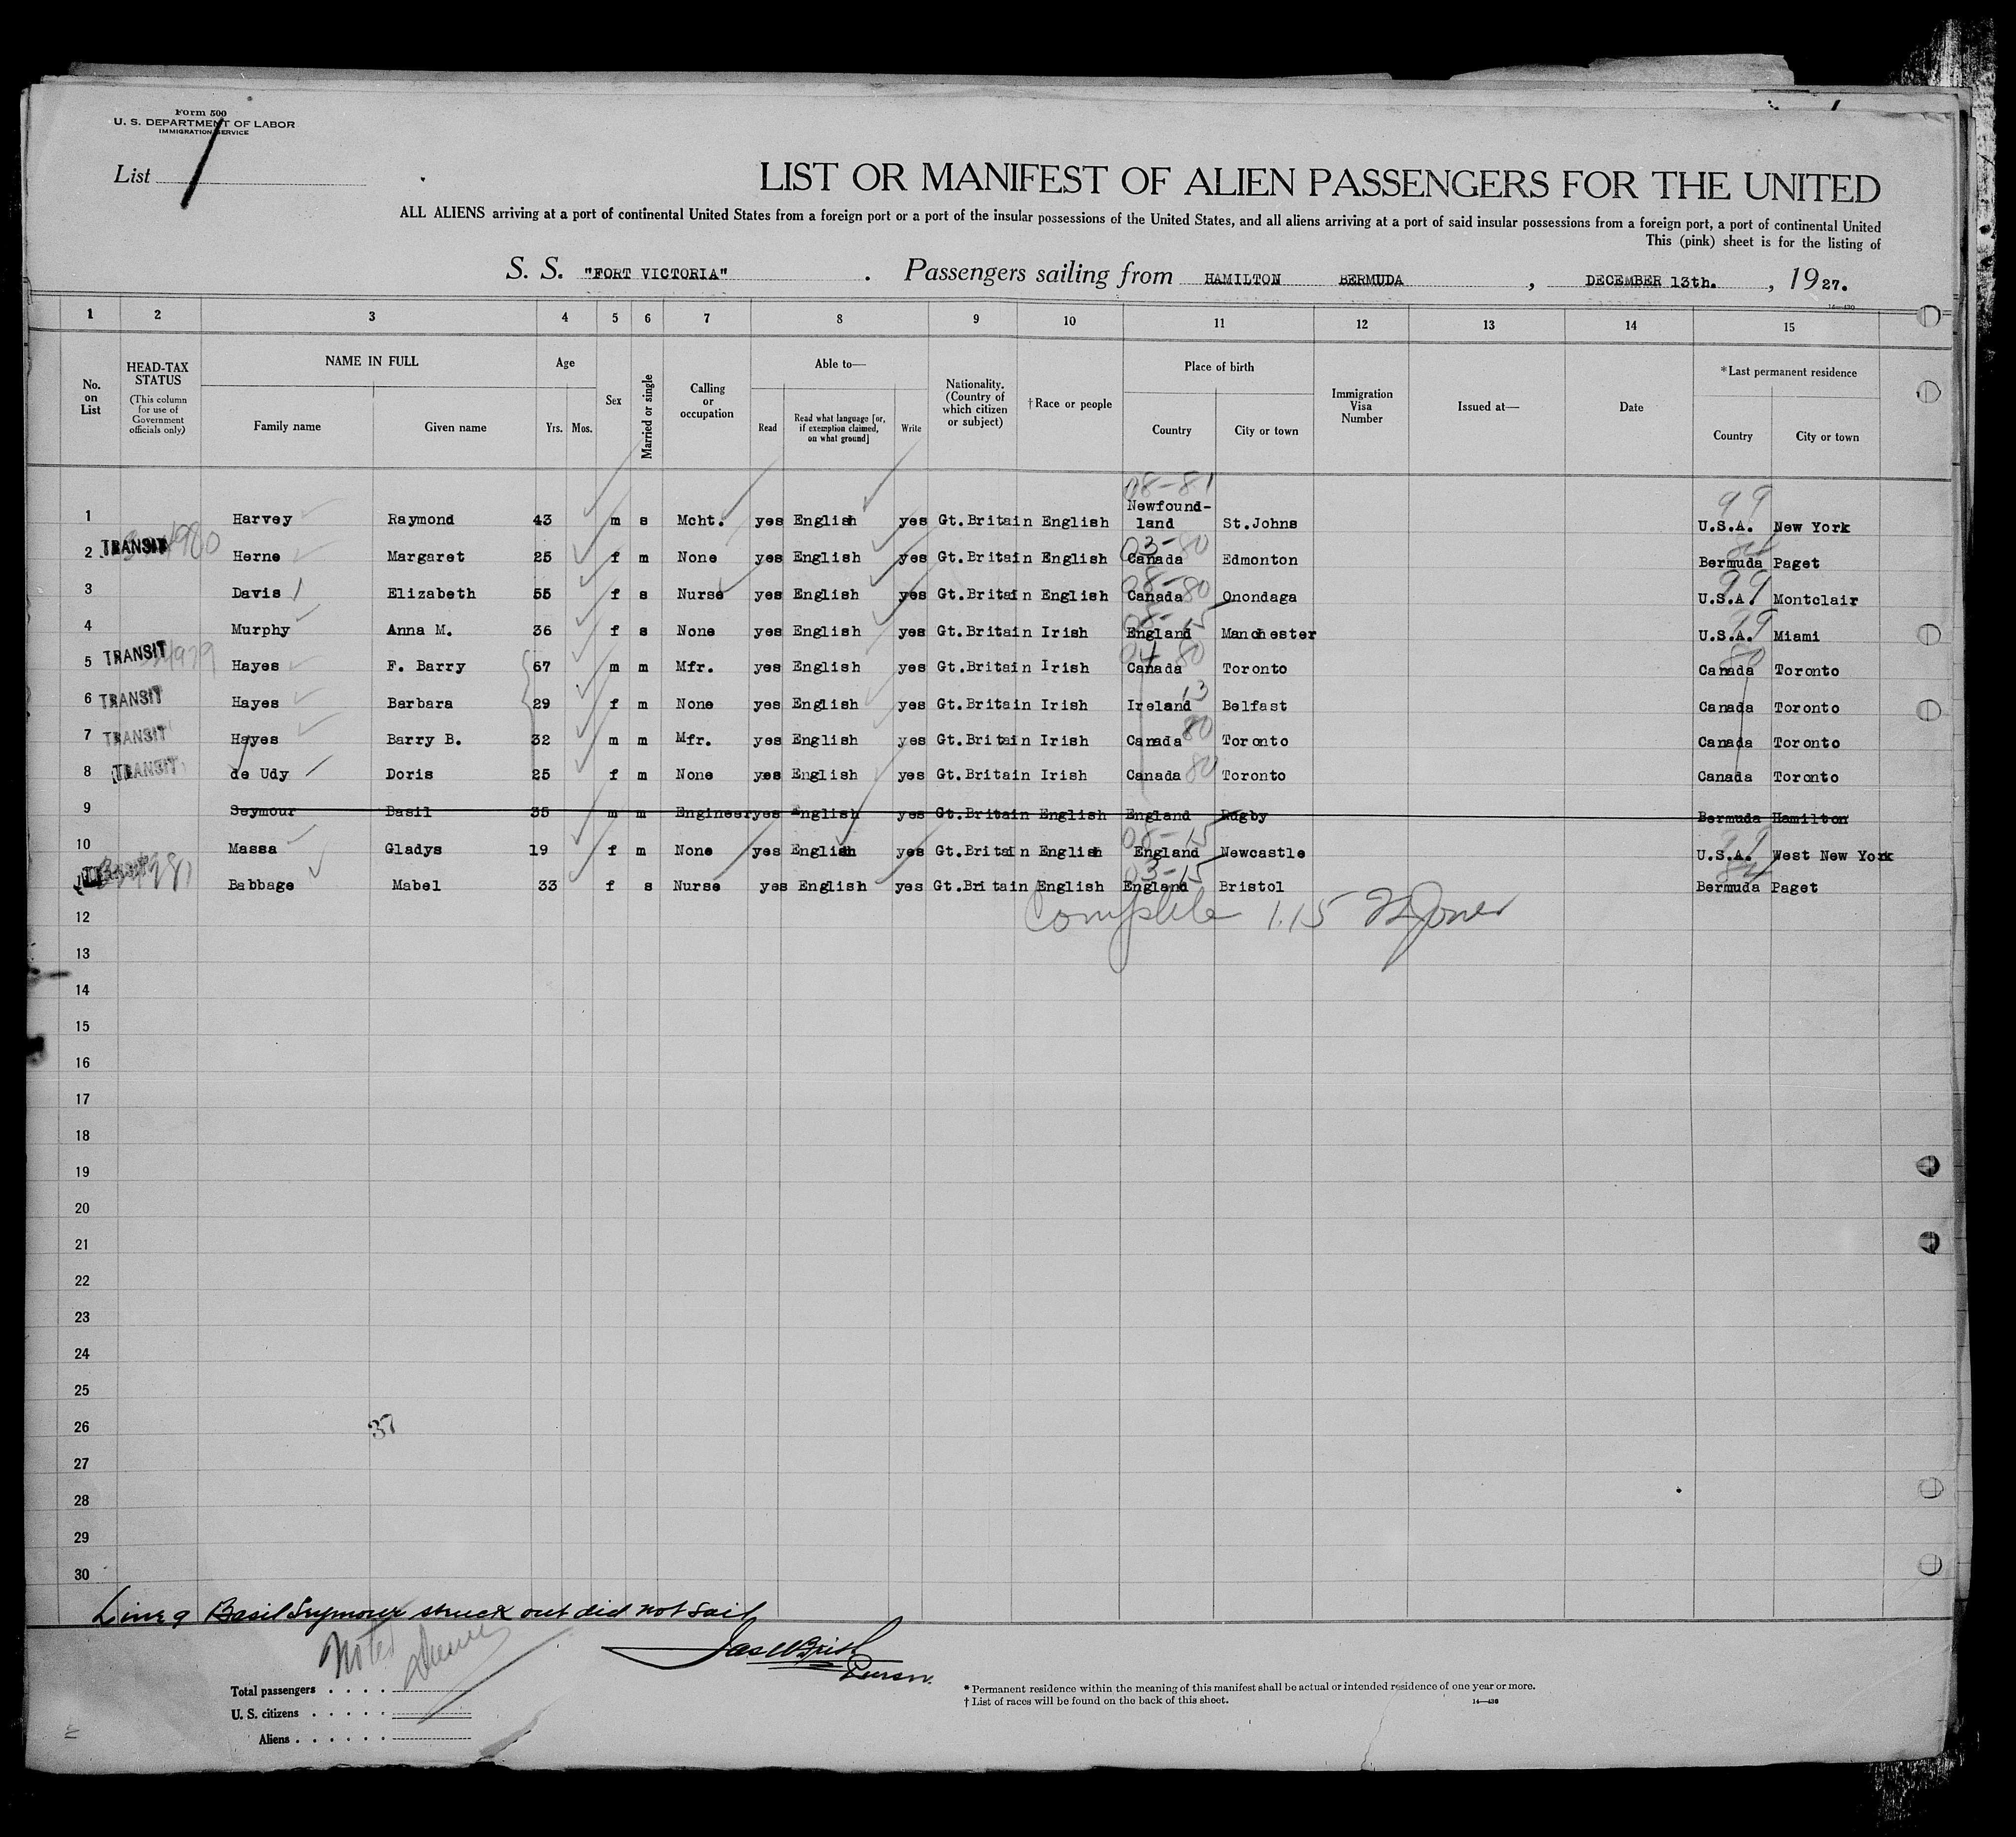 Form 500
U. S. DEPARTMENT OF LABOR
IMMIGRATION SERVICE
List 1
LIST OR MANIFEST OF ALIEN PASSENGERS FOR THE UNITED
ALL ALIENS arriving at a port of continental United States from a foreign port or a port of the insular possessions of the United States, and all aliens arriving at a port of said insular possessions from a foreign port, a port of continental United
This (pink) sheet is for the listing of
S. S. "FORT VICTORIA" . Passengers sailing from HAMILTON BERMUDA , DECEMBER 13th. , 1927.
1 2 3 4 5 6 7 8 9 10 11 12 13 14 15
No. on List
HEAD-TAX STATUS (This column for use of Government officials only)
NAME IN FULL Family name Given name
Age Yrs. Mos.
Sex
Married or single
Calling or occupation
Able to— Read Read what language [or, if exemption claimed, on what ground] Write
Nationality. (Country of which citizen or subject)
†Race or people
Place of birth Country City or town
Immigration Visa Number
Issued at—
Date
*Last permanent residence Country City or town
08-81 99
1 Harvey Raymond 43 m s Mcht. yes English yes Gt.Britain English Newfound-land St.Johns U.S.A. New York
2 TRANSIT Herne Margaret 25 f m None yes English yes Gt.Britain English Canada 03-80 Edmonton Bermuda Paget
3 Davis Elizabeth 55 f s Nurse yes English yes Gt.Britain English Canada 08-80 Onondaga U.S.A. 99 Montclair
4 Murphy Anna M. 36 f s None yes English yes Gt.Britain Irish England 08-15 Manchester U.S.A. 99 Miami
5 TRANSIT Hayes F. Barry 67 m m Mfr. yes English yes Gt.Britain Irish Canada 04 80 Toronto Canada 80 Toronto
6 TRANSIT Hayes Barbara 29 f m None yes English yes Gt.Britain Irish Ireland 13 Belfast Canada Toronto
7 TRANSIT Hayes Barry B. 32 m m Mfr. yes English yes Gt.Britain Irish Canada 80 Toronto Canada Toronto
8 TRANSIT de Udy Doris 25 f m None yes English yes Gt.Britain Irish Canada 80 Toronto Canada Toronto
9 Seymour Basil 35 m m Engineer yes English yes Gt.Britain English England Rugby Bermuda Hamilton
10 Massa Gladys 19 f m None yes English yes Gt.Britain English England 08-15 Newcastle U.S.A. 99 West New York
Babbage Mabel 33 f s Nurse yes English yes Gt.Britain English England 03-15 Bristol Bermuda Paget
12 Complete 1.15 Jones
13
14
15
16
17
18
19
20
21
22
23
24
25
26 37
27
28
29
30
Line 9 Basil Seymour struck out did not sail
Noted
Purser.
Total passengers . . . .
U. S. citizens . . . . .
Aliens . . . . . .
* Permanent residence within the meaning of this manifest shall be actual or intended residence of one year or more.
† List of races will be found on the back of this sheet. 14—430